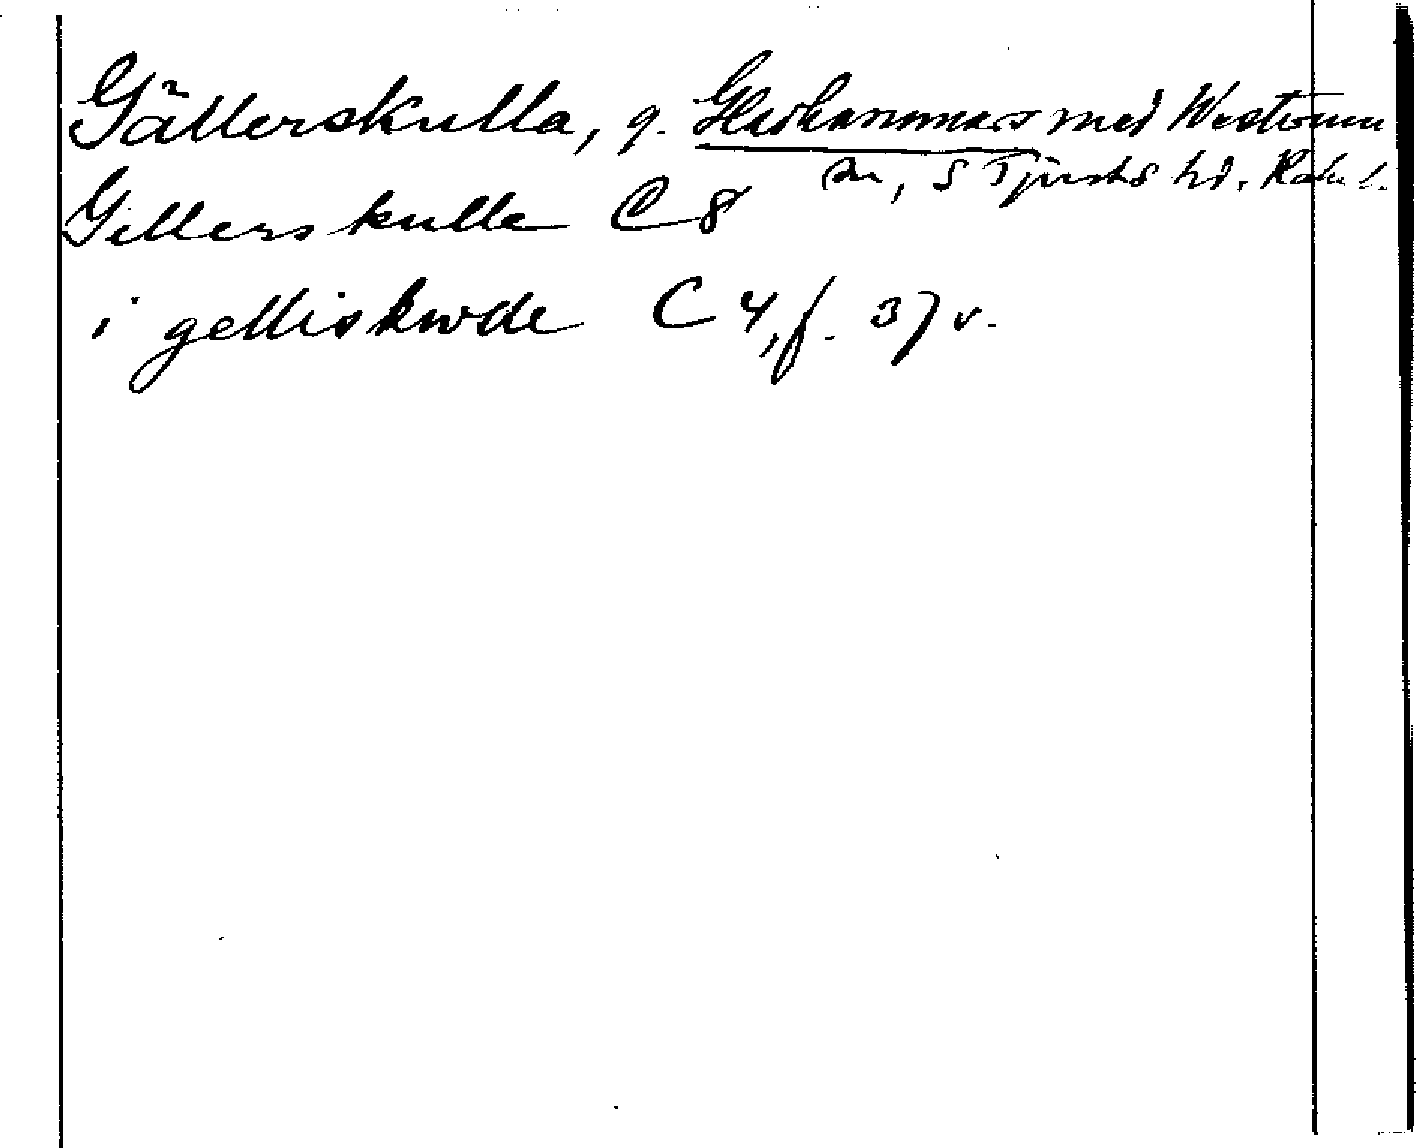 Gällerskulla, g. Gladhammars med Westrum
sn, S Tjusts hd. Kalm. l.
Gillerskulle C 8
i gelliskwlle C 4, f. 37 v.